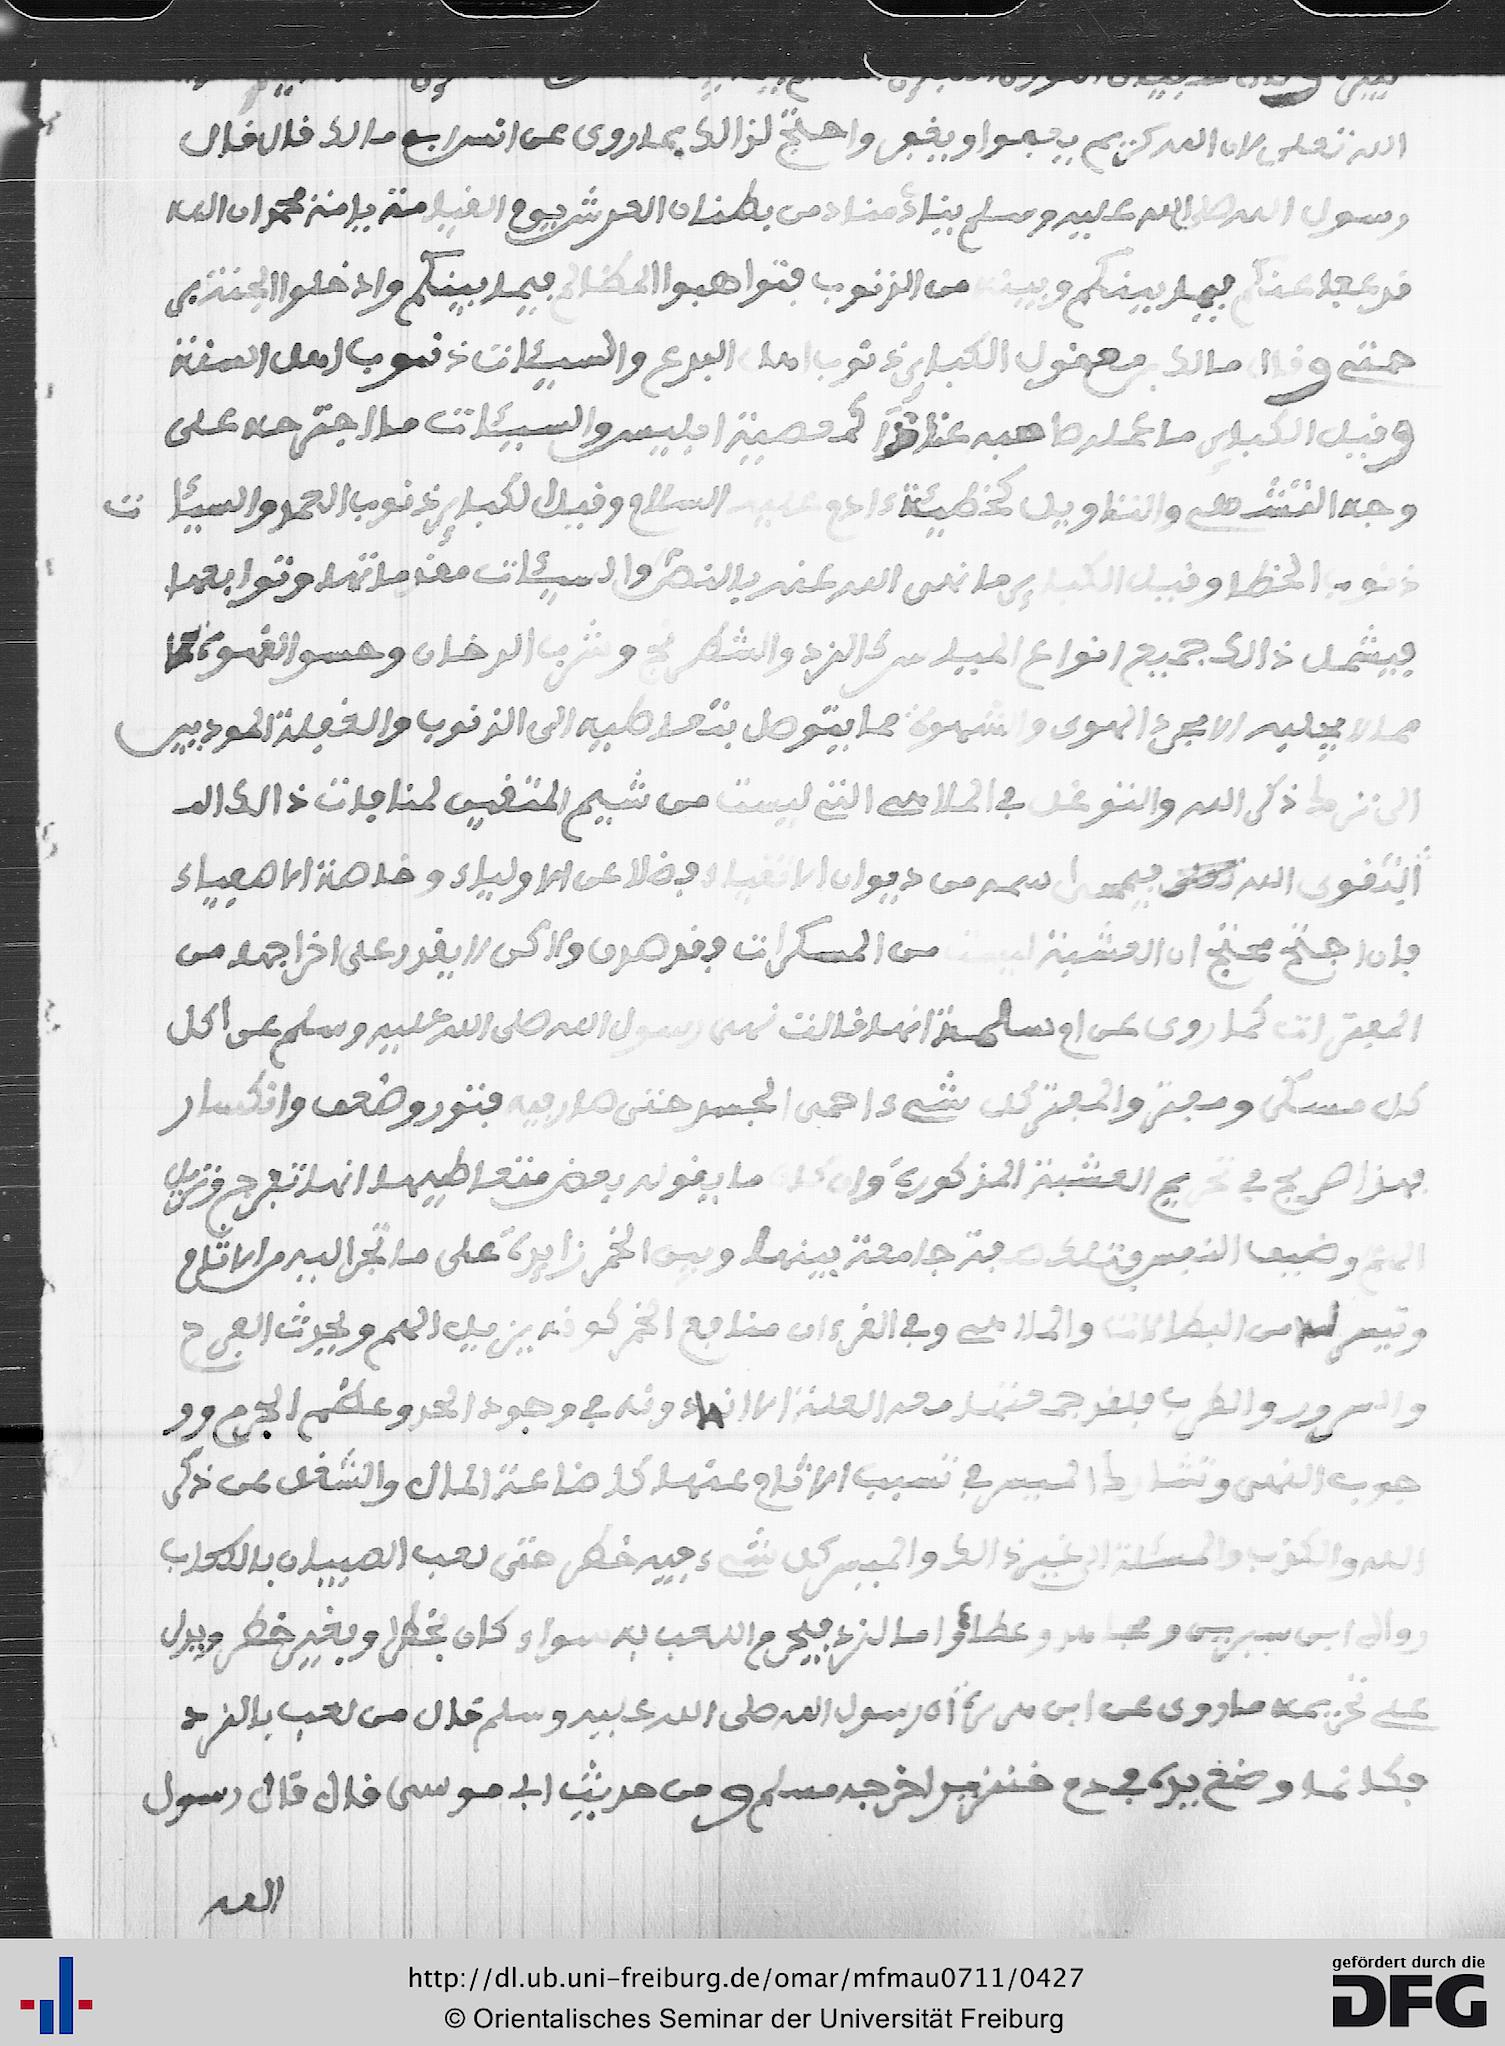 الله تعلى لان الله كريم يعفوا ويغفر واحتج لذالك بما روى عن انس ابن مالك قال قال
رسول الله صلى الله عليه وسلم ينادى مناد من بطنان العرش يوم القيامة يا امة محمد ان الله
قد عفا عنكم فيما بينكم وبينه من الذنوب فتواهبوا المظالم فيما بينكم وادخلوا الجنة برحمته
وقال مالك بن مغول الكبائر ذنوب اهل البدع والسيئات ذنوب اهل السنة
وقيل الكبائر ما عمله صاحبه عنادا كمعصية ابليس والسيئات ما اجترحه على
وجه التشهى والتاويل كخطيئة ءادم عليه السلام وقيل الكبائر ذنوب العمد والسيئات
ذنوب الخطا وقيل الكبائر ما نهى الله عنه بالنص والسيئات مقدماتها وتوابعها
فيشمل ذالك جميع انواع الميسر كالنرد والشطرنج وشرب الدخان وحسو القهوة
مما لا يجلبه الا مجرد الهوى والشهوة مما يتوصل بتعاطيه الى الذنوب والغفلة المودين
الى ترك ذكر الله والتوغل في الملاهى التى ليست من شيم المتقين لمنافات ذالك الـ
تقوى الله فيمحى اسمه من ديوان الاتقياء فضلا عن الاولياء وخاصة الاصفياء
فان احتج محتج ان العشبة ليست من المسكرات فقد صدق ولاكن لا يقدر على اخراجها من
المفترات كما روى عن ام سلمة انها قالت نهى رسول الله صلى الله عليه وسلم عن اكل
كل مسكر ومفتر والمفتر كل شىء احمى الجسد حتى صار فيه فتور وضعف وانكسار
فهذا صريح في تحريم العشبة المذكورة وان كان ما يقوله بعض متعاطيها انها تفرج وتزيل
الهم وضيف النفس فتلك صفة جامعة بينها وبين الخمر زايدة على ما تجر اليه من الاثام
وتيسر له من البطالات والملاهى وفي القرءان منافع الخمر كونه يزيل الهم ويحدث الفرح
والسرور والطرب فلفرحتها معه العلة الا انها دونه في وجود الحد وعظم الجرم وو
جوب النهى وتشارك الميسر في تسبب الاثام عنها كاضاعة المال والشغل عن ذكر
الله والكذب والمسئلة الى غير ذالك والميسر كل شىء فيه خطر حتى لعب الصبيان بالكعاب
رواه ابن سيرين ومجاهد وعطاء واما النرد فيحرم اللعب به سواء كان بخطر او بغير خطر ويدل
على تحريمه ما روى عن ابى هريرة ان رسول الله صلى الله عليه وسلم قال من لعب بالنرد
فكانما وضع يده في دم خنزير اخرجه مسلم ومن حديث ابى موسى قال قال رسول
الله
http://dl.ub.uni-freiburg.de/omar/mfmau0711/0427
© Orientalisches Seminar der Universität Freiburg
gefördert durch die
DFG